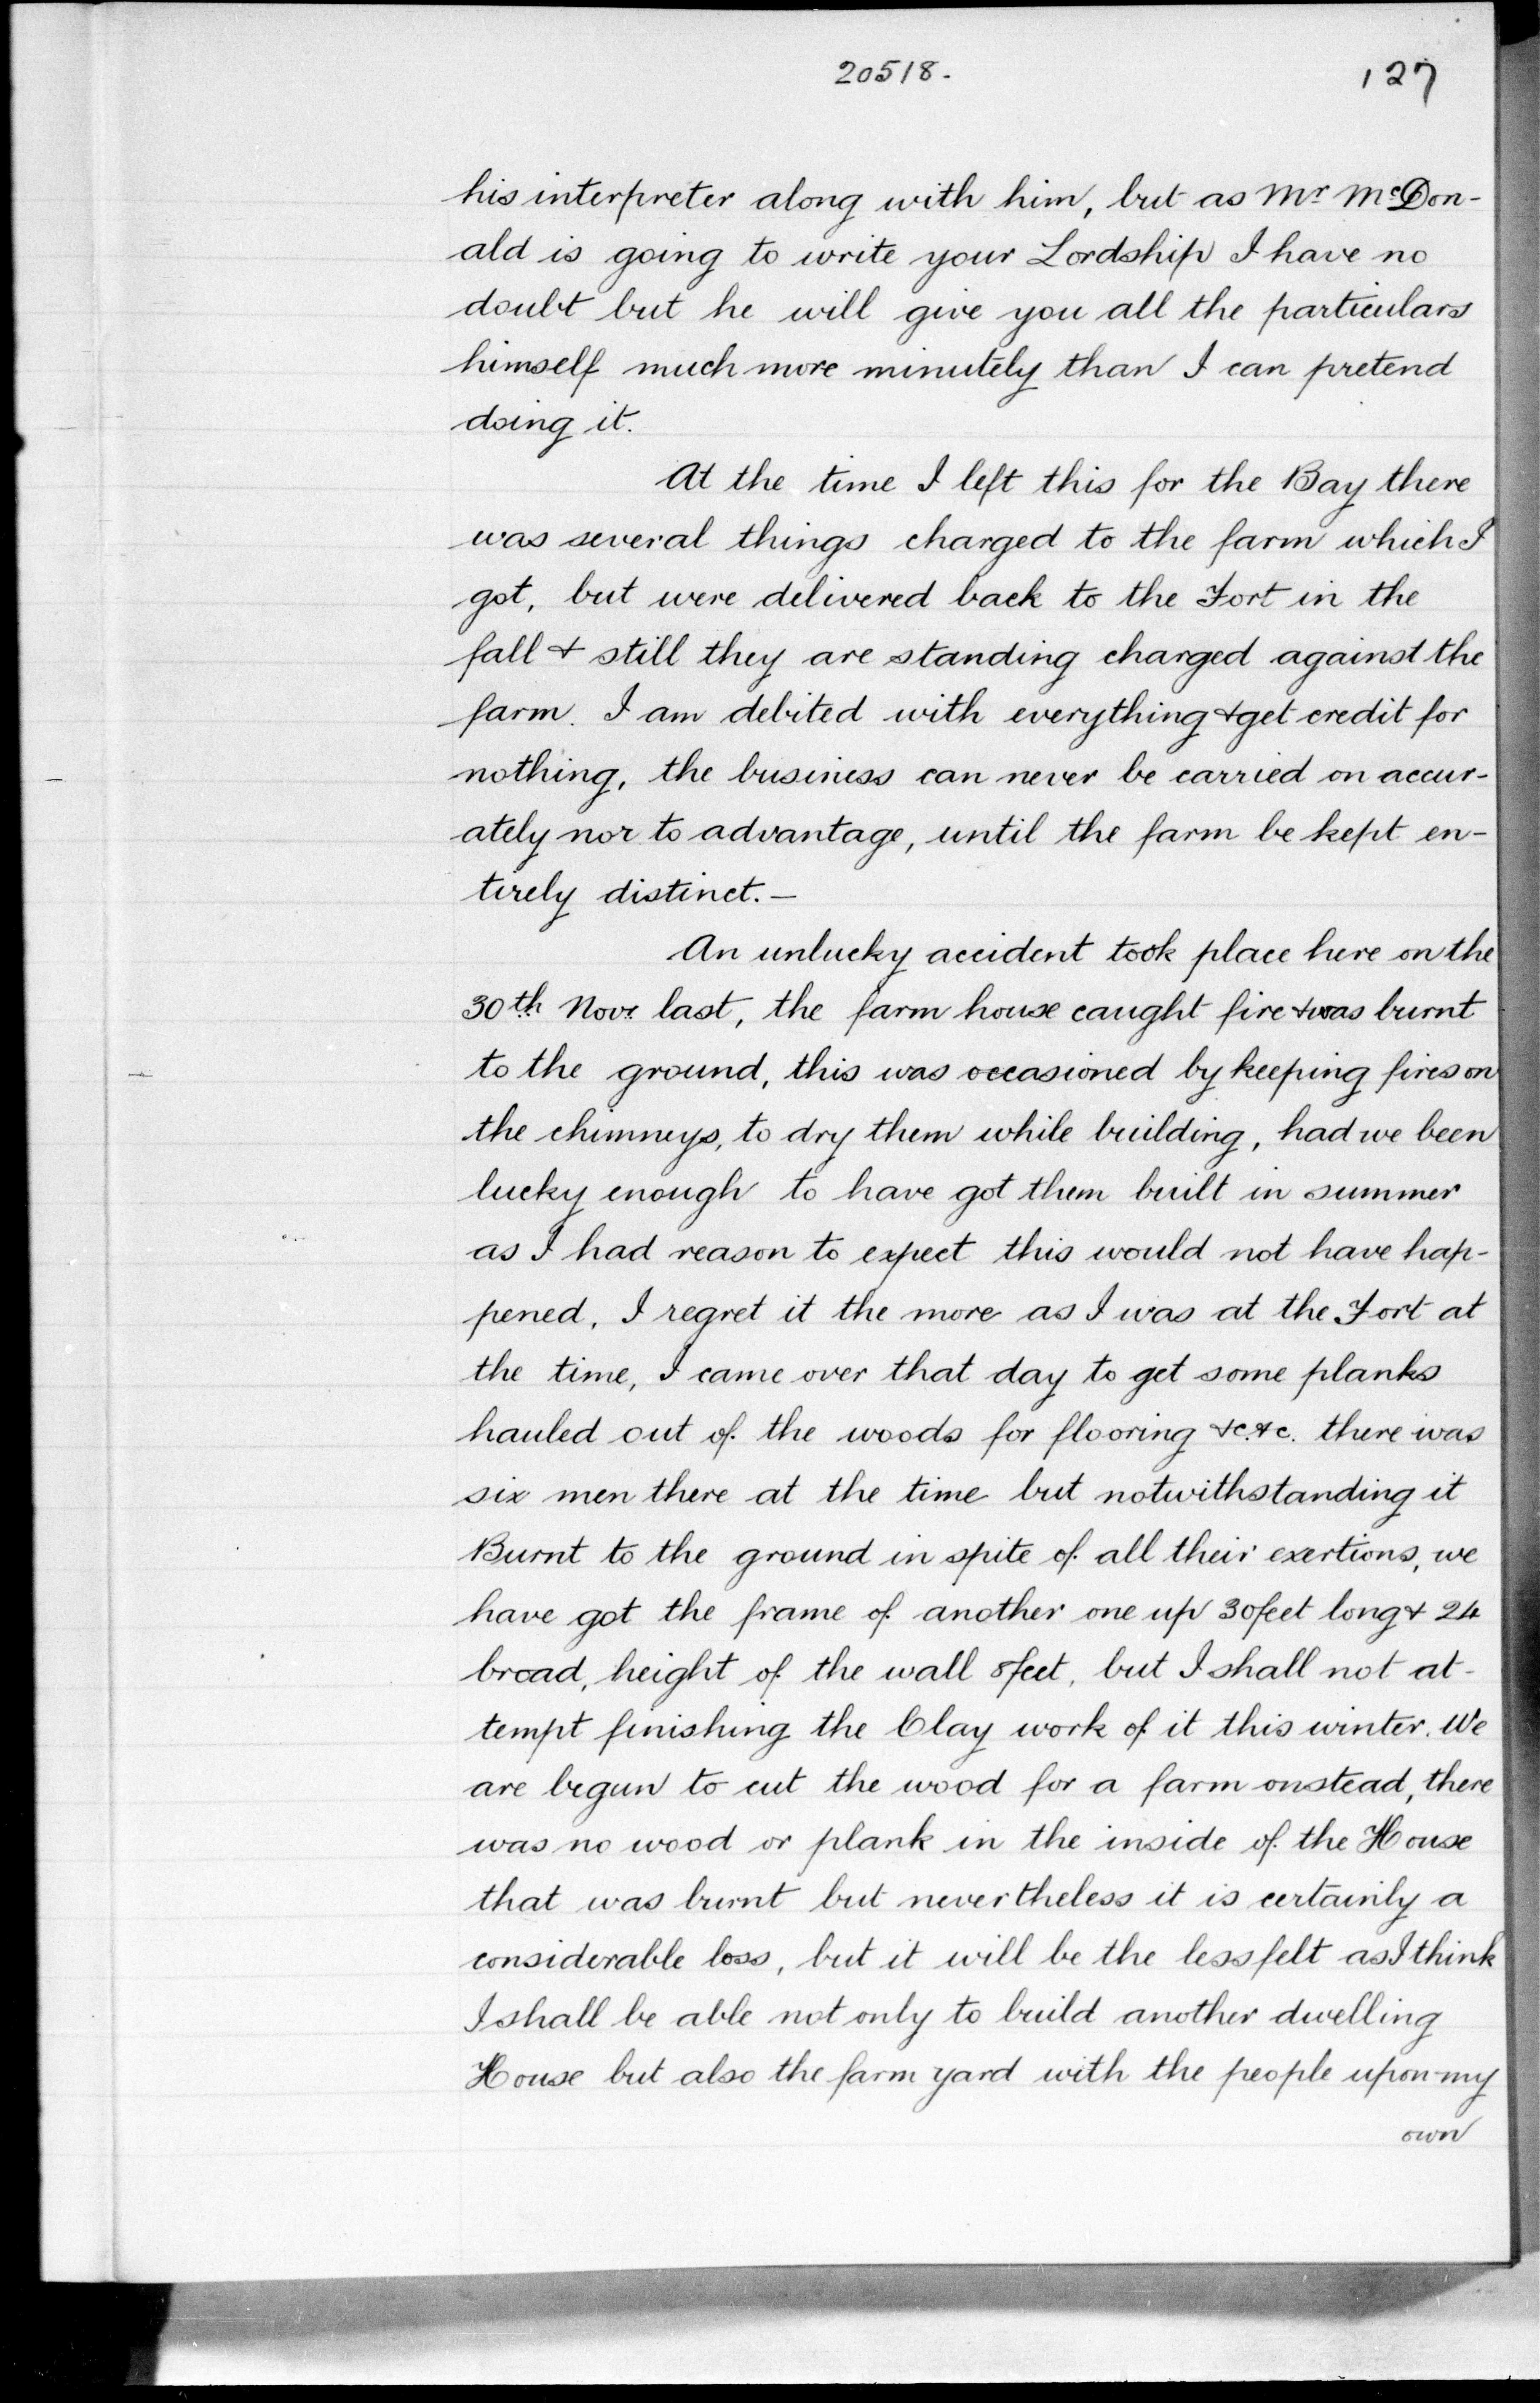 20518.
127
his interpreter along with him, but as Mr McDon-
ald is going to write your Lordship I have no
doubt but he will give you all the particulars
himself much more minutely than I can pretend
doing it.
At the time I left this for the Bay there
was several things charged to the farm which I
got, but were delivered back to the Fort in the
fall & still they are standing charged against the
farm. I am debited with everything & get credit for
nothing, the business can never be carried on accur-
ately nor to advantage, until the farm be kept en-
tirely distinct.—
An unlucky accident took place here on the
30th Novr last, the farm house caught fire & was burnt
to the ground, this was occasioned by keeping fires on
the chimneys, to dry them while building, had we been
lucky enough to have got them built in summer
as I had reason to expect this would not have hap-
pened, I regret it the more as I was at the Fort at
the time, I came over that day to get some planks
hauled out of the woods for flooring &c. &c. there was
six men there at the time but notwithstanding it
Burnt to the ground in spite of all their exertions, we
have got the frame of another one up 30 feet long & 24
broad, height of the wall 8 feet, but I shall not at-
tempt finishing the Clay work of it this winter. We
are begun to cut the wood for a farm onstead, there
was no wood or plank in the inside of the House
that was burnt but nevertheless it is certainly a
considerable loss, but it will be the less felt as I think
I shall be able not only to build another dwelling
House but also the farm yard with the people upon my
own